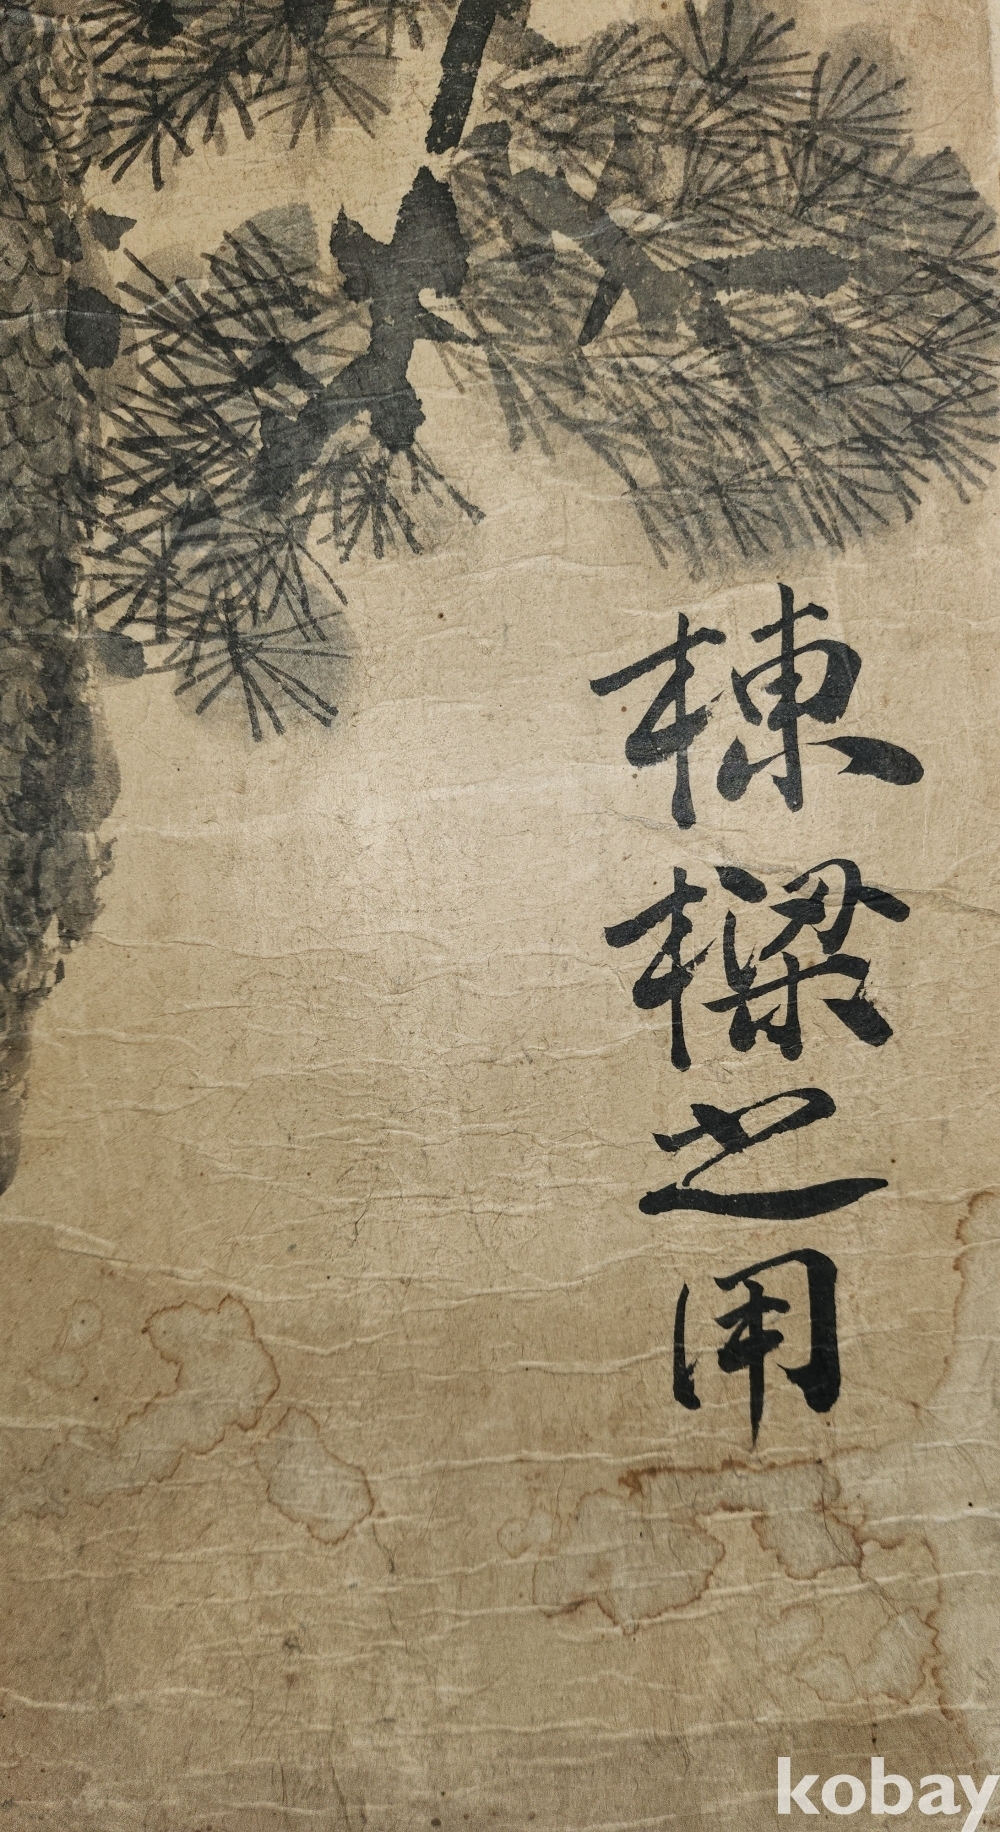 棟樑之用
kobay